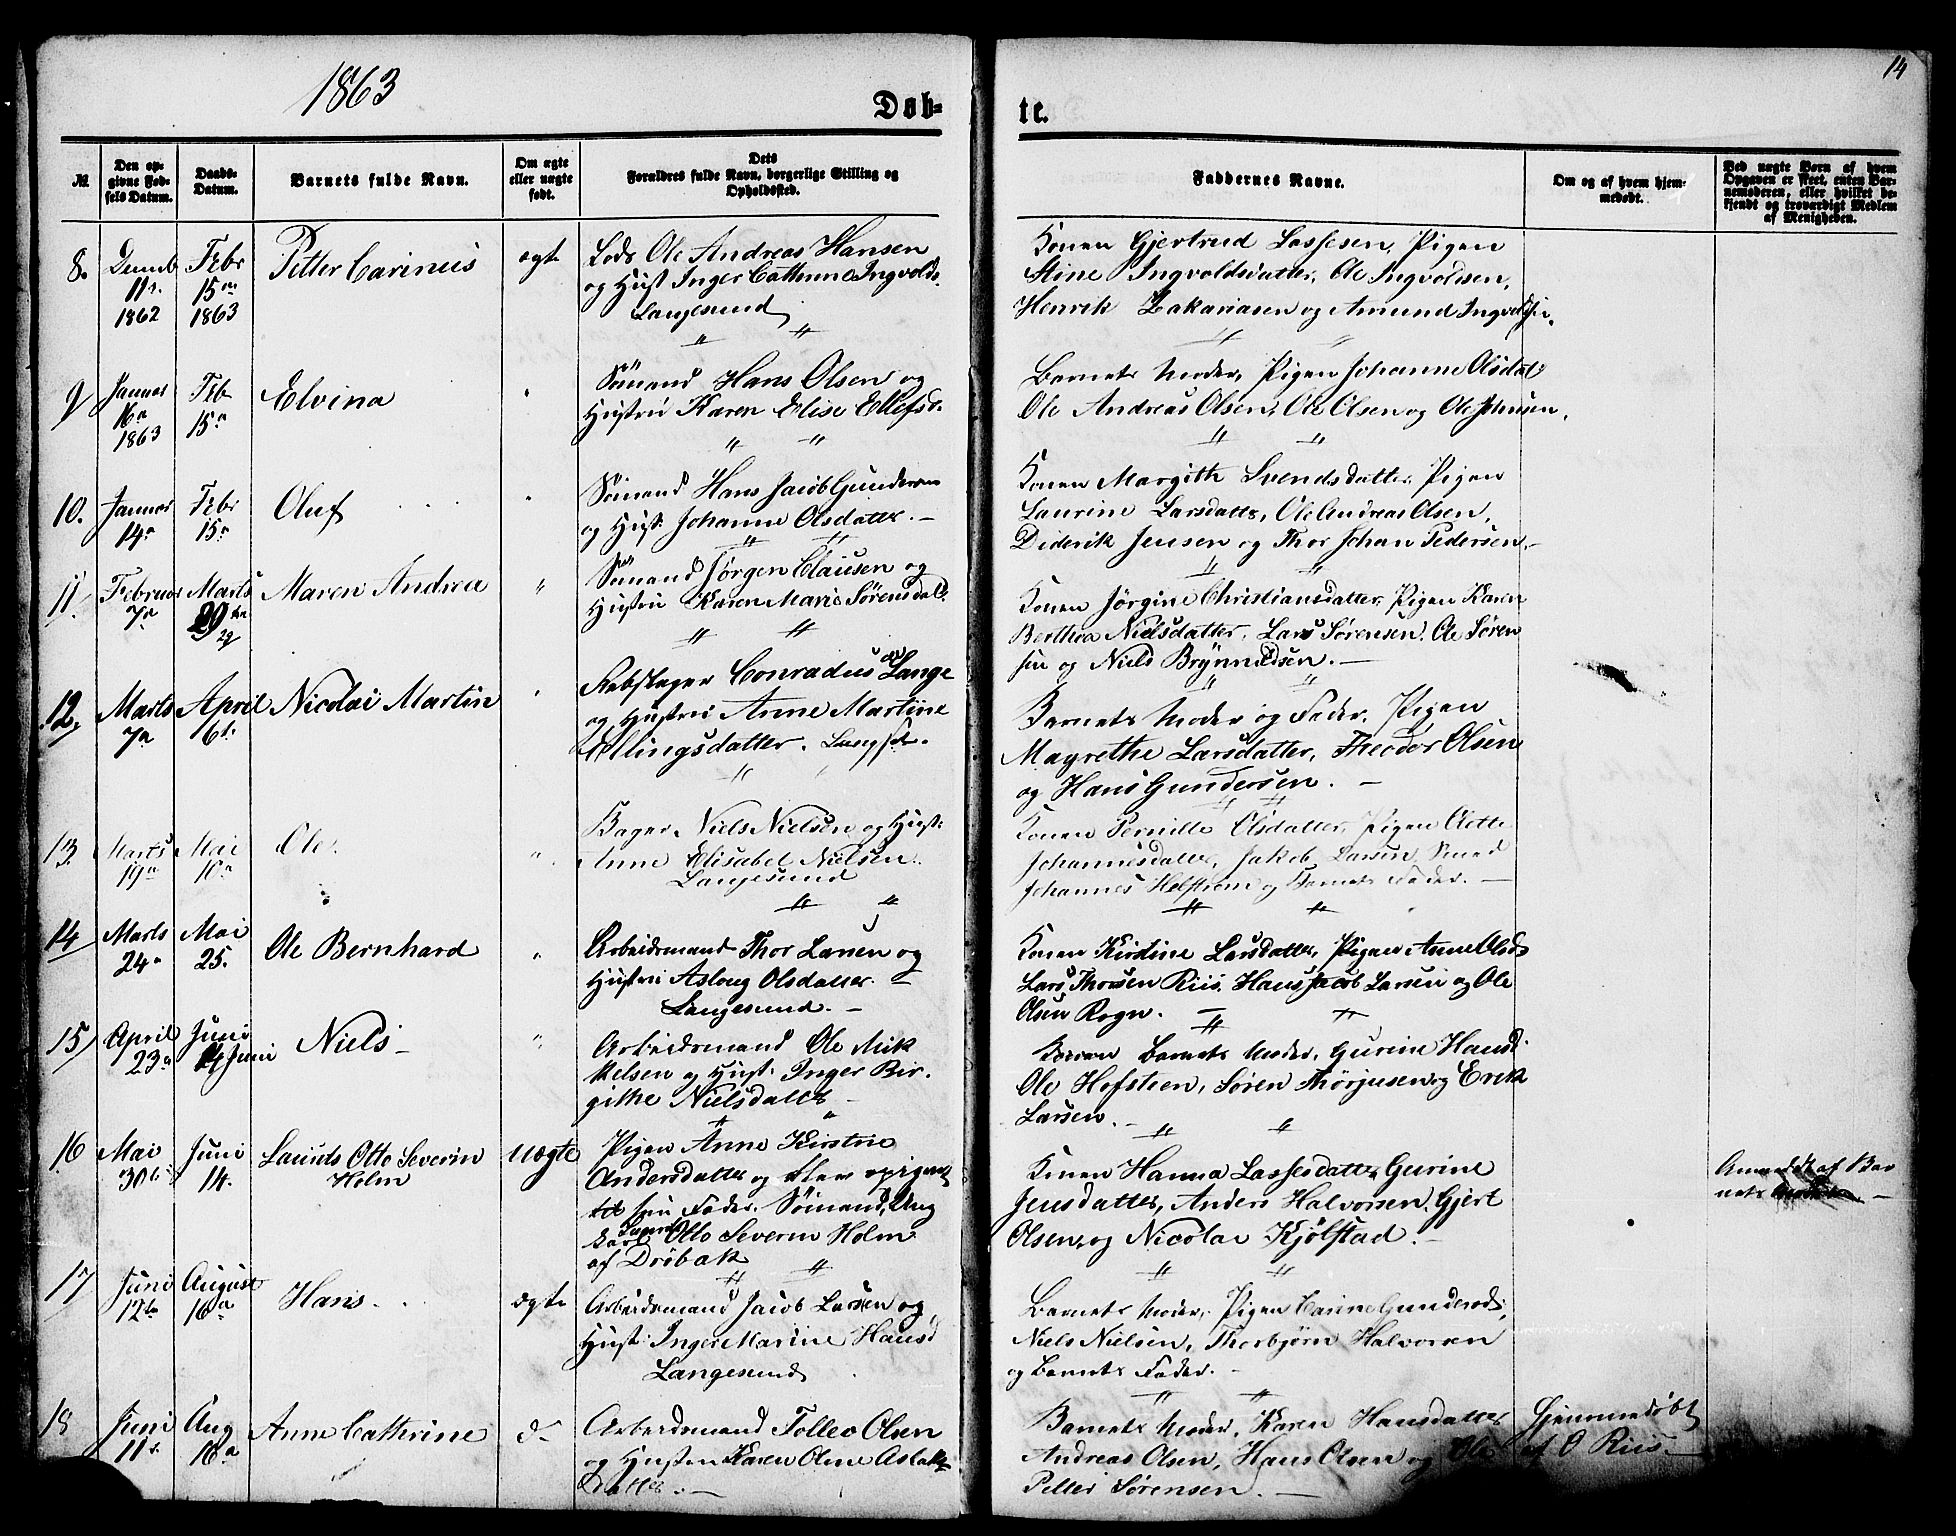 1863
14
Døb-
te.
№
Den op-
givne Fød-
sels Datum.
Daabs-
Datum.
Barnets fulde Navn.
Om ægte
eller uægte
født.
Dets
Forældres fulde Navn, borgerlige Stilling og
Opholdssted.
Faddernes Navne.
Om og af hvem hjem-
medøbt.
Ved uægte Børn af hvem
Opgaven er skeet, enten Bar-
nemoderen, eller hvilket be-
kjendt og troværdigt Medlem
af Menigheden.
8.
Decmb
11te
1862
Febr
15de
1863
Petter Carinus
ægte
Lods Ole Andreas Hansen
og Hust Inger Cathrine Ingvolds.
Langesund
Konen Gjertrud Lassesen, Pigen
Stine Ingvoldsdatter, Ole Ingvoldsen,
Henrik Zakariasen og Amund Ingvoldsen.
9
Januar
16de
1863
Feb
15de
Elvina
"
Sömand Hans Olsen og
Hustru Karen Elise Ellefsd.
Barnets Moder, Pigen Johanne Olsdat
Ole Andreas Olsen, Ole Olsen og Ole Johnsen.
10.
Januar
14de
Febr
15de
Oluf
"
Sömand Hans Jacob Gundersen
og Hust. Johanne Olsdatter. —
Konen Margith Svendsdatter, Pigen
Laurine Larsdatter, Ole Andreas Olsen,
Diderik Jensen og Thor Johan Pedersen. —
11
Februar
7de
Marts
29de
29
Maren Andrea
"
Sömand Jørgen Clausen og
Hustru Karen Marie Sørensdat.
Konen Jørgine Christiansdatter, Pigen Karen
Berthea Nielsdatter, Lars Sørensen, Ole Søren
sen og Niels Brynnildsen. —
12.
Marts
7de
April
6te
Nicolai Martin
"
Rebslager Conradus Lange
og Hustru Anne Martine
Ellingsdatter.
Barnets Moder og Fader, Pigen
Magrethe Larsdatter, Theodor Olsen
og Hans Gundersen. —
13.
Marts
19de
Mai
10de
Ole.
"
Bager Niels Nielsen og Hust:
Anne Elisabet Nielsen.
Langesund
Konen Pernille Olsdatter, Pigen
Johannesdatter, Jakob Larsen, Smed
Johannes Helstrøm og Barnets Fader. —
14
Marts
24de
Mai
25.
Ole Bernhard
"
Arbeidsmand Thor Larsen og
Hustru Aslaug Olsdatter. —
Langesund. —
Konen Kirstine Larsdatter, Pigen Anne Olsd.
Lars Thorsen Riis, Hans Jacob Larsen og Ole
Olsen Rogn. —
15
April
23de
Juni
14 Juni
Niels —
"
Arbeidsmand Ole Mik
kelsen og Hust: Inger Bir.
githe Nielsdatter —
Barnets Moder, Gurine Hansd.
Ole Hofsteen, Søren Thorjusen og Erik
Larsen. —
16
Mai
30te
Juni
14.
Laurids Otto Severin
Holm
uægte
Pigen Anne Kirstine
Andersdatter og
til sin Fader. Sömand, Ung
karl Laurids Otto Severin Holm
af Drøbak
Konen Hanna Lassesdatter, Gurine
Jensdatter, Anders Halvorsen, Gjert
Olsen, og Nicolai Kjølstad. —
Anmeldt af Bar
nets Moder —
17
Juni
12te
August
16de
Hans.
ægte
Arbeidsmand Jacob Larsen og
Hust: Inger Marine Hansd
Langesund
Barnets Moder, Pigen Carine Gundersd.,
Niels Nielsen, Thorbjørn Halvorsen
og Barnets Fader. —
18
Juni
11te
Aug
16de
Anne Cathrine
do
Arbeidsmand Tollev Olsen
og Hustru Karen Oline Aslak
datter. —
Barnets Moder, Karen Hansdatter
Andreas Olsen, Hans Olsen og Ole
Petter Sørensen. —
Hjemmedøbt
af O Riis. —